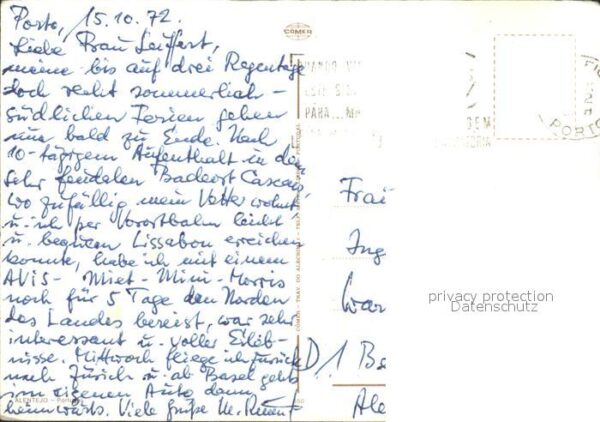 Porto, 15.10.72.
Liebe Frau Leiffert,
meine bis auf drei Regentage
doch recht sommerlich-
südlichen Ferien gehen
nun bald zu Ende. Nach
10-tägigem Aufenthalt in dem
sehr feudalen Badeort Cascais,
wo zufällig mein Vetter wohnt,
u. ich per Vorortbahn leicht
u. bequem Lissabon erreichen
konnte, habe ich mit einem
AVIS-Miet-Mini-Morris
noch für 5 Tage den Norden
des Landes bereist, war sehr
interessant u. voller Erleb-
nisse. Mittwoch fliege ich zurück
nach Zürich u. ab Basel gehts
im eigenen Auto dann
heimwärts. Viele Grüße
ALENTEJO - Portugal
COMER
PARA...
PORTO
Frau
Ing
War
D/1 Be
Ale
privacy protection
Datenschutz